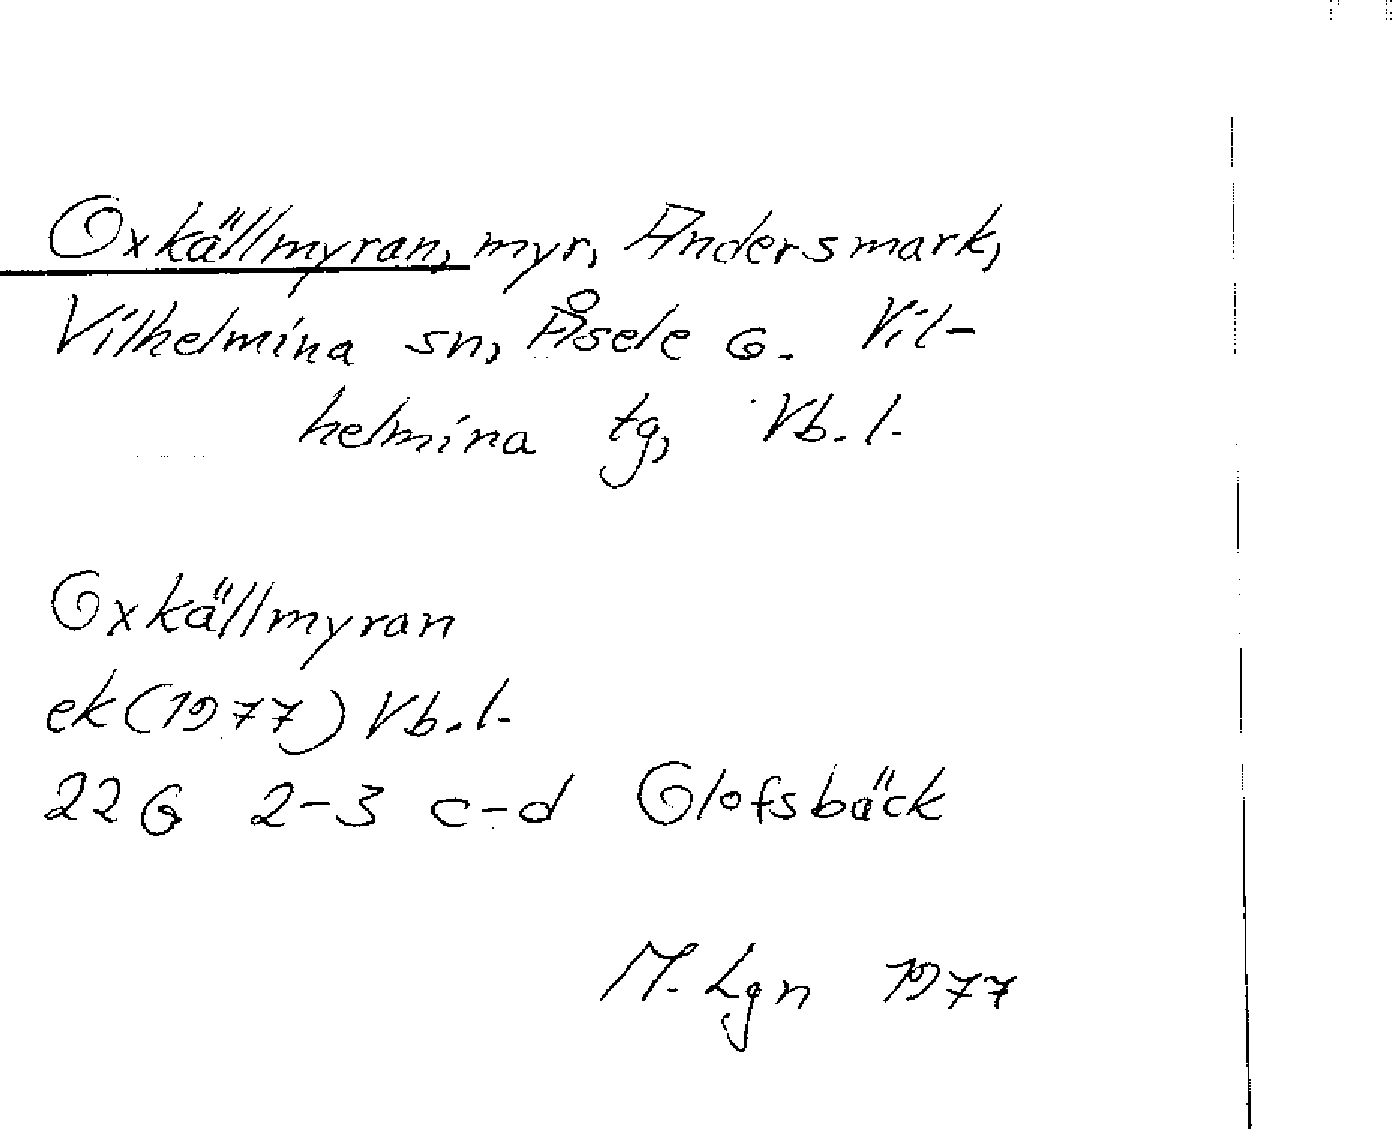 Oxkällmyran, myr, Andersmark,
Vilhelmina sn, Åsele G. Vil-
helmina tg, Vb. l.
Oxkällmyran
ek (1977) Vb. l.
22 G 2-3 c-d Olofsbäck
M. Lgn 1977